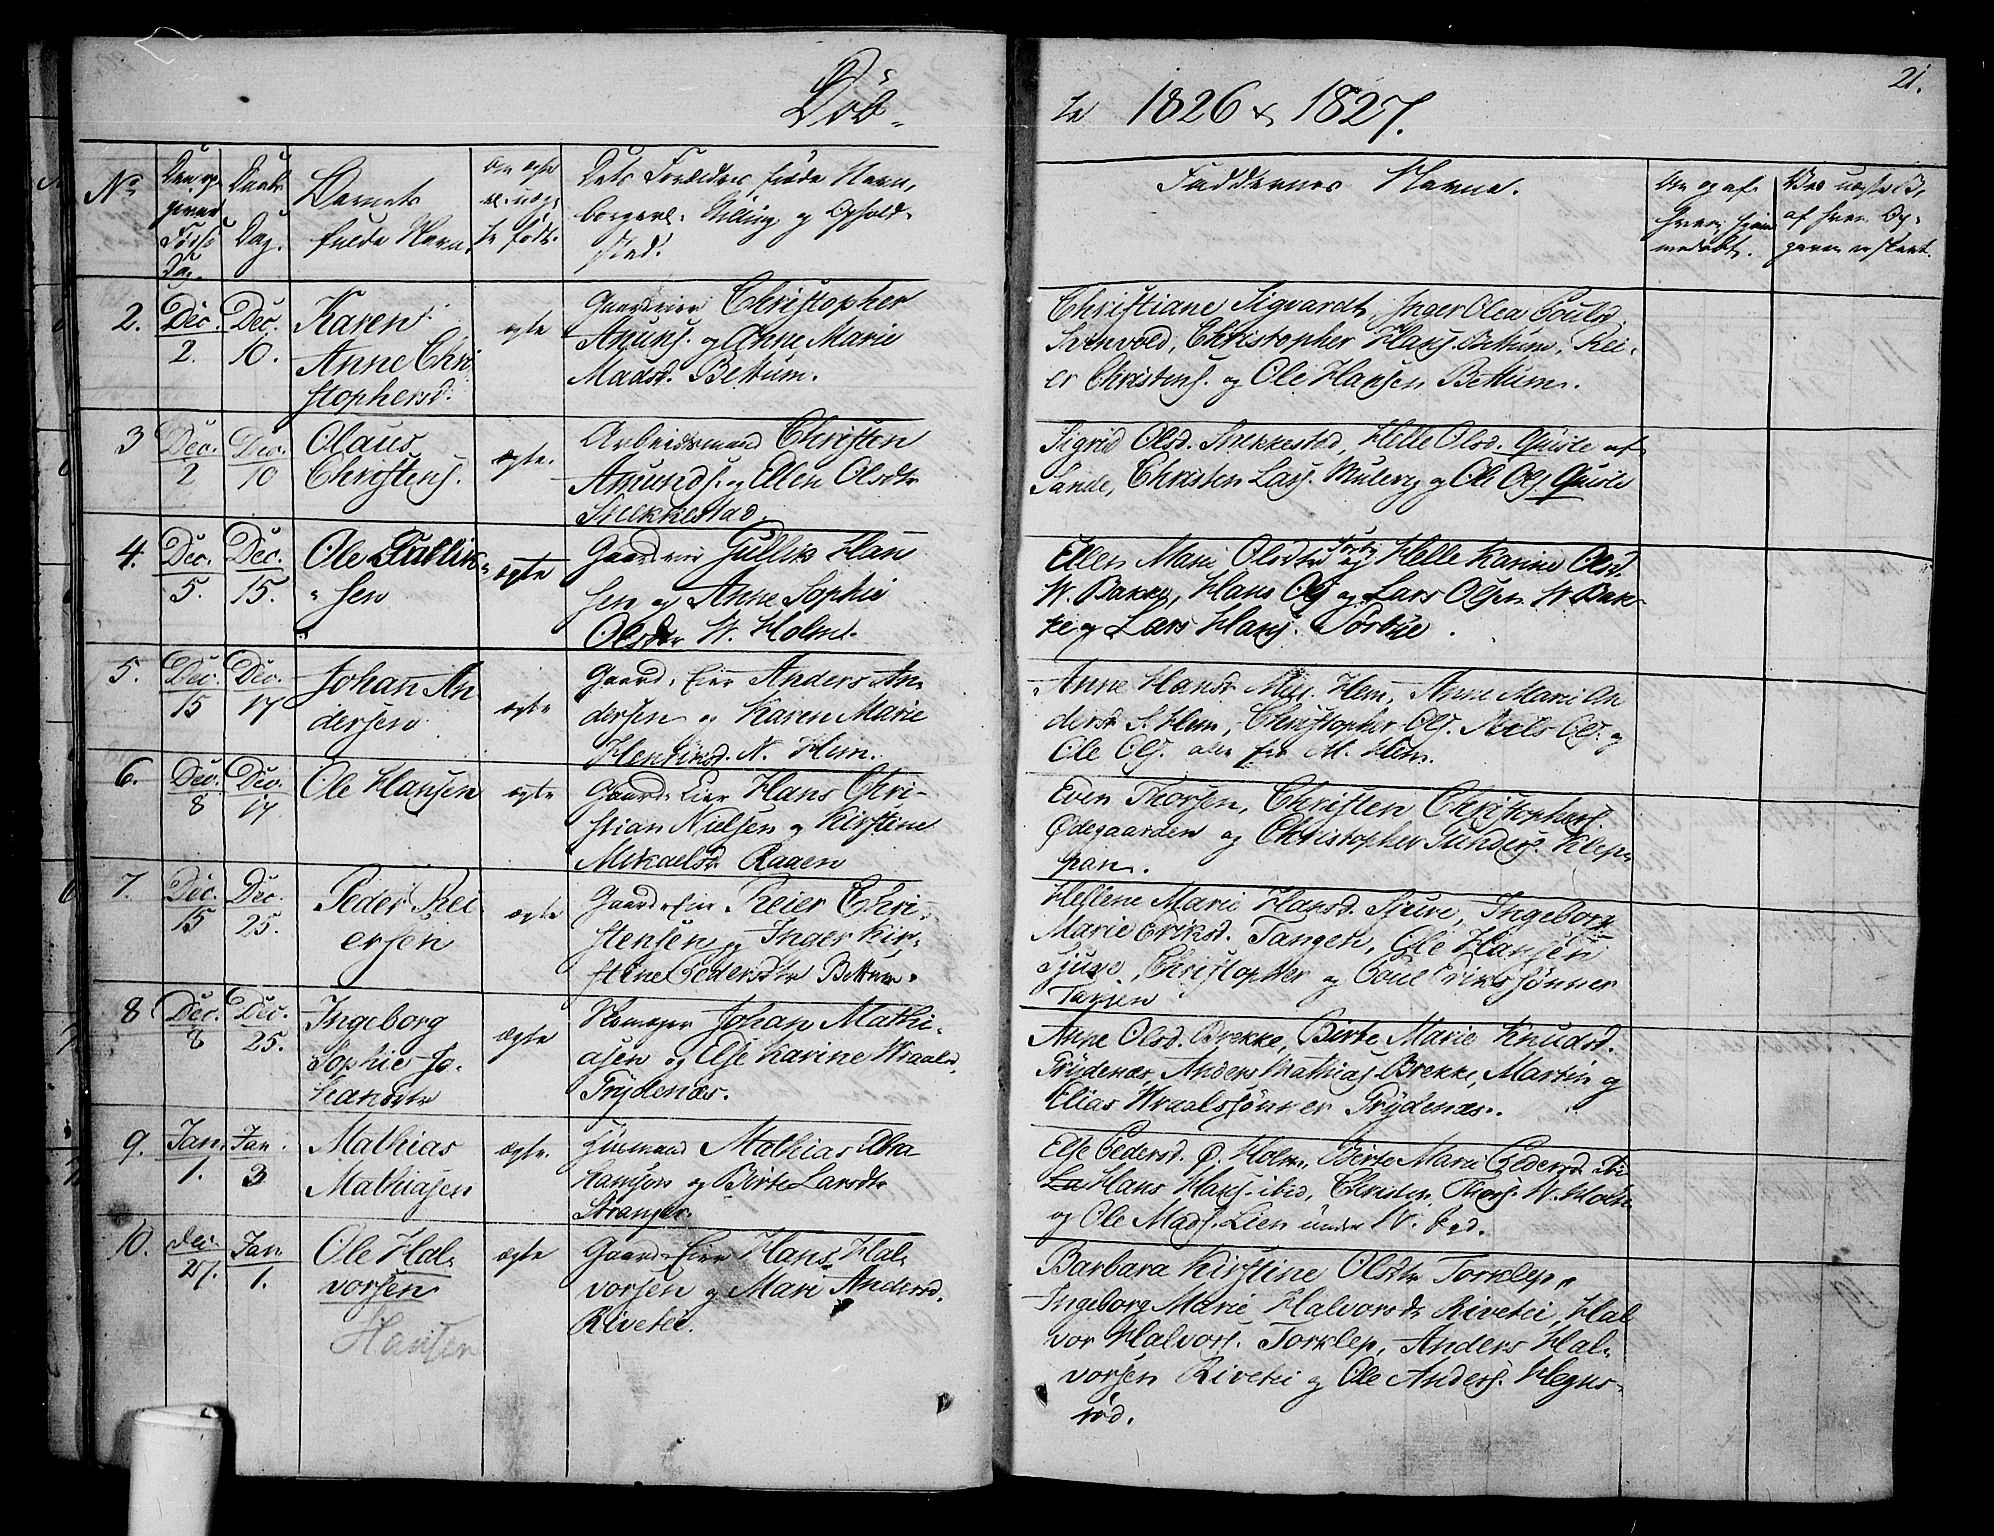 21.
Døb-
te 1826 & 1827.
No
Den op-
given
Føds
Dag.
Daabs
Dag.
Barnets
fulde Navn.
Om ægte
el. uæg-
te født.
Dets Forældres fulde Navn,
borgerl. Stilling og Opholds-
sted.
Faddernes Navne.
Om og af
hvem hjem-
medøbt.
Ved uægte B.
af hvem Op-
given er skeet.
2.
Dec.
2.
Dec.
10.
Karen
Anne Chri
stophersd.
ægte
Gaardeier Christopher
Amunds. og Anne Marie
Madsd. Bettum.
Christiane Sigvardt, Inger Olea Poulsd.
Christopher Hans. Bettum, Rei-
er Christens. og Ole Hansen Bettum.
3
Dec.
2
Dec.
10
Olaus
Christens.
ægte.
Arbeidsmand Christen
Amunds. og Ellen Olsdtr
Snekkestad.
Sigrid Olsd. Snekkestad, Helle Olsd. Quisle af
Sande, Christen Lars. Mulevig og Ole Ols. Quisle
4.
Dec.
5.
Dec.
15.
Ole Gullik-
sen
ægte
Gaardeier Gullik Han
sen og Anne Sophie
Olsdtr W. Holm.
Ellen Marie Olsdtr og Helle Karine Olsd.
W. Bakke, Hans Ols og Lars Olsen W. Bak-
ke og Lars Hans.
5.
Dec.
15
Dec.
17
Johan An
dersen
ægte
Gaard-Eier Anders An-
dersen og Karen Marie
Henriksd. N. Hem.
Anne Hansdr Hem, Anne Marie An
dersdr S. Hem, Christopher Ols. Niels Ols. og
Ole Ols. alle fra M. Hem.
6.
Dec.
8
Dec.
17
Ole Hansen
ægte
Gaard-Eier Hans Chri-
stian Nielsen og Kirstine
Mikaelsdr Raaen
Even Thorsen, Christen Christophers.
Ødegaarden og Christopher Gunders. Klep-
pan.
7.
Dec.
15
Dec.
25.
Peder Rei-
ersen
ægte
Gaard-Eier Reier Chri-
stensen og Inger Kir-
stine Pedersdtr Bettum.
Hellene Marie Hansd. Sjue, Ingeborg
Marie Eriksd. Tangen, Ole Hansen
Sjue, Christopher og Poul Erikssønner
Tangen
8
Dec.
8
Dec.
25.
Ingeborg
Sophie Jo-
hansdtr
ægte
Skomager Johan Mathi-
asen og Else Karine Wraalsd.
Frydenæs.
Anne Olsd. Brekke, Birte Marie Knudsd.
Frydenæs, Anders Mathias. Brekke, Martin og
Elias Wraalssønner Frydenæs.
9.
Jan.
1.
Jan.
3
Mathias
Mathiasen
ægte.
Huusmand Mathias Abra
hamsøn og Birte Larsdtr
Stranger.
Else Pedersd. Ø. Holm, Birte Marie Pedersd.
Hans Hans. ibid, Christen Thors. W. Holm
og Ole Mads. Lien under W.
10.
Dec.
27.
Jan
1.
Ole Hal-
vorsen
Hansen
ægte
Gaard-Eier Hans Hal-
vorsen og Mari Andersd.
Rivetei.
Barbara Kirstine Olsdtr Torklep,
Ingeborg Marie Halvorsdtr Rivetei, Hal
vor Halvors. Torklep, Anders Hal-
vorsen Rivetei og Ole Anders. Hegns-
rød.